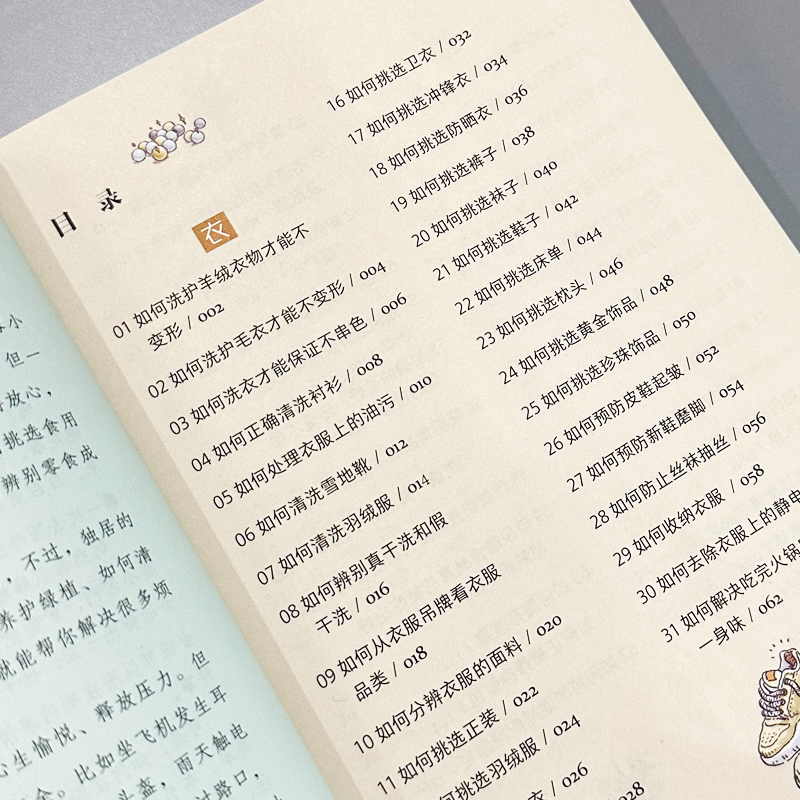 小
但一
放心，
挑选食用
辨别零食成
，不过，独居的
养护绿植、如何清
就能帮你解决很多烦
心生愉悦、释放压力。但
全。比如坐飞机发生耳
头盔，雨天触电
过路口，
目 录
衣
01 如何洗护羊绒衣物才能不
变形 / 002
02 如何洗护毛衣才能不变形 / 004
03 如何洗衣才能保证不串色 / 006
04 如何正确清洗衬衫 / 008
05 如何处理衣服上的油污 / 010
06 如何清洗雪地靴 / 012
07 如何清洗羽绒服 / 014
08 如何辨别真干洗和假
干洗 / 016
09 如何从衣服吊牌看衣服
品类 / 018
10 如何分辨衣服的面料 / 020
11 如何挑选正装 / 022
何挑选羽绒服 / 024
衣 / 026
028
16 如何挑选卫衣 / 032
17 如何挑选冲锋衣 / 034
18 如何挑选防晒衣 / 036
19 如何挑选裤子 / 038
20 如何挑选袜子 / 040
21 如何挑选鞋子 / 042
22 如何挑选床单 / 044
23 如何挑选枕头 / 046
24 如何挑选黄金饰品 / 048
25 如何挑选珍珠饰品 / 050
26 如何预防皮鞋起皱 / 052
27 如何预防新鞋磨脚 / 054
28 如何防止丝袜抽丝 / 056
29 如何收纳衣服 / 058
30 如何去除衣服上的静电
31 如何解决吃完火锅
一身味 / 062